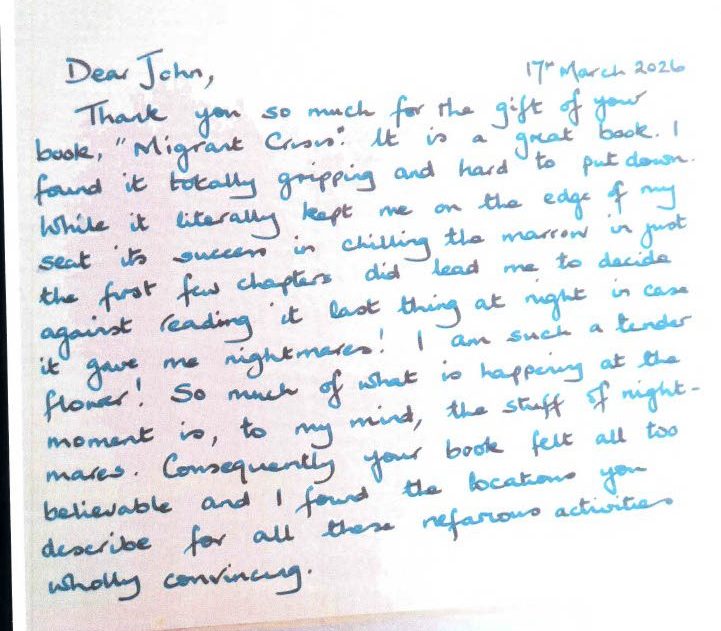 Dear John,
17th March 2026
Thank you so much for the gift of your
book, "Migrant Crisis". It is a great book. I
found it totally gripping and hard to put down.
While it literally kept me on the edge of my
seat its success in chilling the marrow in just
the first few chapters did lead me to decide
against reading it last thing at night in case
it gave me nightmares! I am such a tender
flower! So much of what is happering at the
moment is, to my mind, the stuff of night-
mares. Consequently your book felt all too
believable and I found the locations you
describe for all these nefarious activities
wholly convincing.